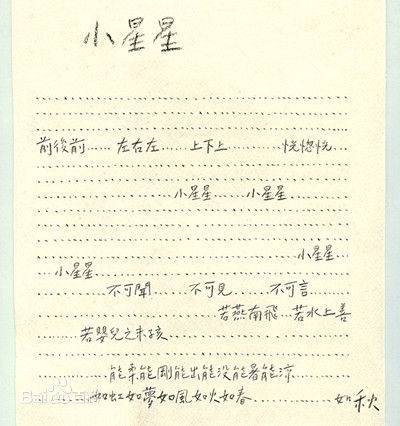 小星星
前後前 左右左 上下上 恍惚恍
小星星 小星星
小星星
小星星
不可聞 不可見 不可言
若燕南飛 若水上善
若嬰兒之未孩
能柔能剛能出能没能暑能涼
如虹如夢如風如火如春 如秋